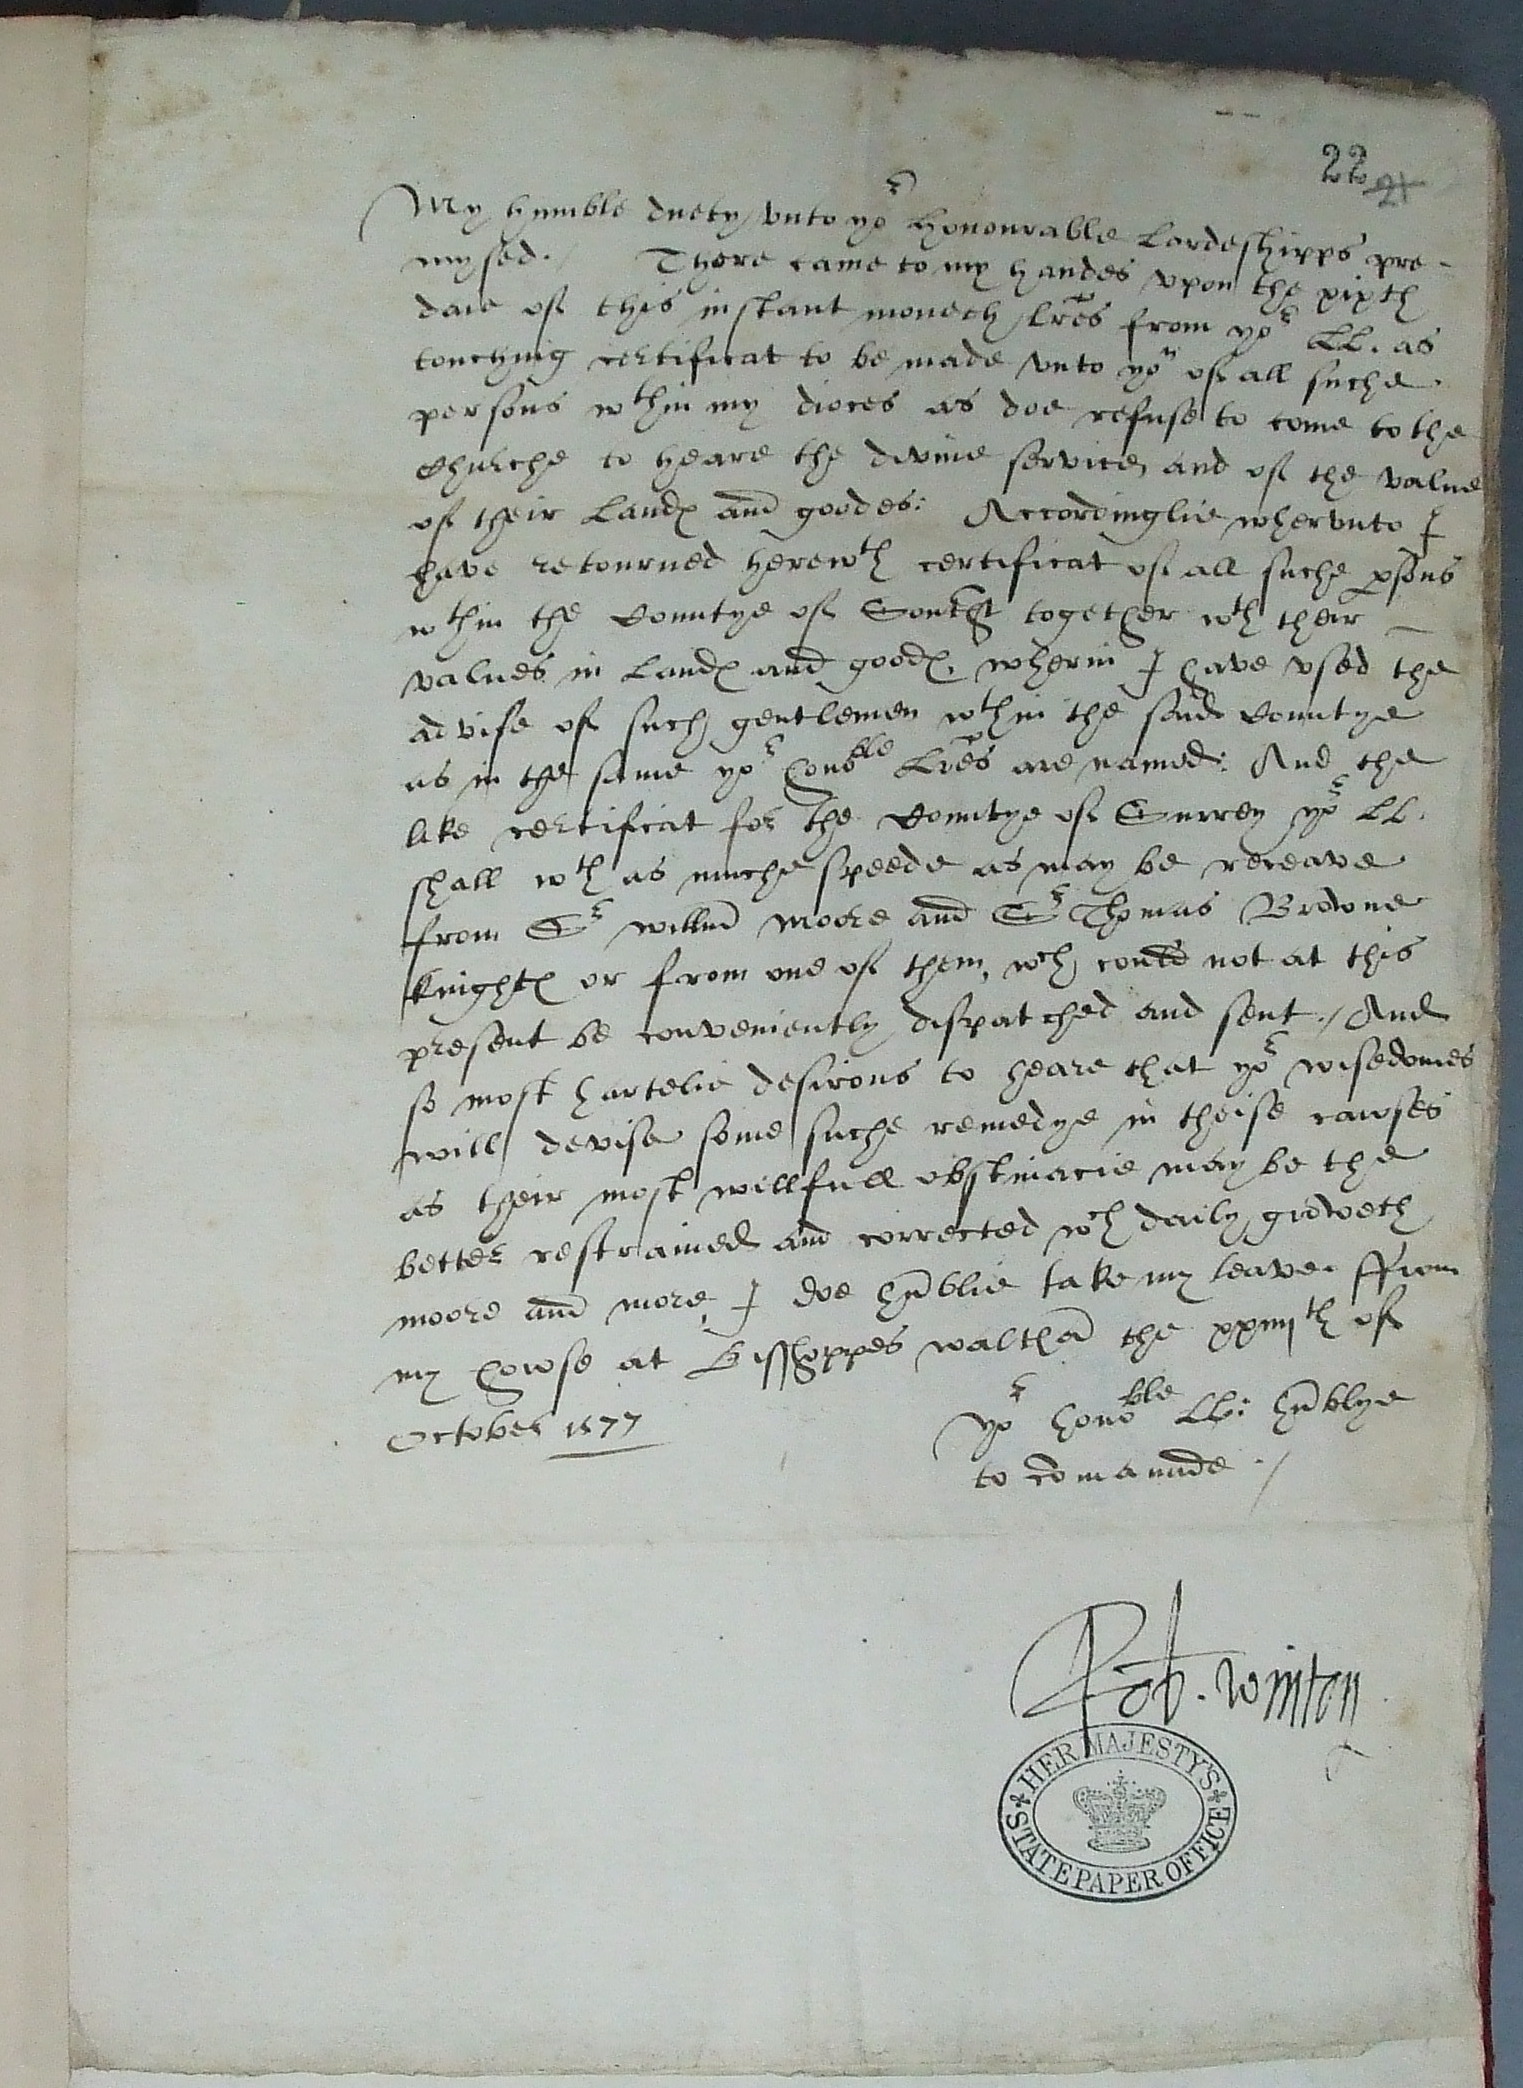 22 21
My humble duety vnto yor honourable Lordeshipps pre-
mysed. There came to my handes vpon the xixth
daie of this instant moneth lres from yor LL. as
touching certificat to be made vnto you of all suche
persons wthin my dioces as doe refuse to come to the
Churche to heare the divine service, and of the value
of their Landes and goodes: Accordinglie whervnto I
have retourned herewth certificat of all suche psons
wthin the Countye of Southt together wth their
values in Landes and goodes, wherin I have vsed the
advise of such gentlemen wthin the said Countye
as in the same yor honble Lres are named: And the
like certificat for the Countye of Surrey yor LL.
shall wth as muche speede as may be receave
from Sr willm Moore and Sr Thomas Browne
knightes or from one of them, wch could not at this
present be conveniently dispatched and sent./ And
so most hartelie desirous to heare that yor wisedomes
will devise some suche remedye in theise cawses
as their most willfull obstinacie may be the
better restrained and corrected wch daily groweth
moore and more, I doe hūblie take my leave. ffrom
my howse at Bisshoppes walthā the xxiiijth of
October 1577
yor honoble LL: hūblye
to cōmaunde ./
Rob. winton
HER MAJESTY'S
STATE PAPER OFFICE